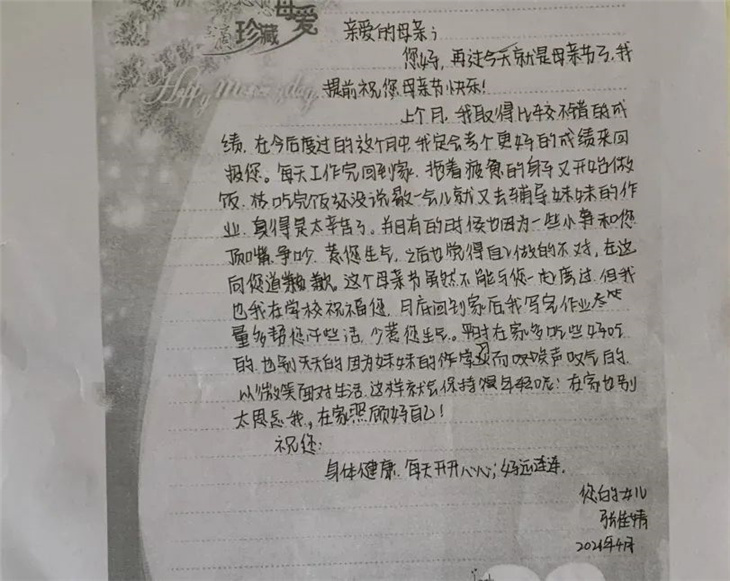 珍藏
母爱
Happy Mother's day
亲爱的母亲:
您好,再过今天就是母亲节了,我
提前祝您母亲节快乐!
上个月,我取得比较不错的成
绩,在今后度过的这个月中,我定会考个更好的成绩来回
报您。每天工作完回到家,拖着疲惫的身子又开始做
饭,吃完饭还没说歇一会儿就又去辅导妹妹的作
业,真得是太辛苦了。并且有的时候也因为一些小事和您
顶嘴,争吵,惹您生气,之后也觉得自己做的不对,在这
向您道歉。这个母亲节虽然不能与您一起度过,但我
也我在学校祝福您,月底回到家后我写完作业尽
量多帮您干些活,少惹您生气。平时在家多吃些好吃
的,也别天天的因为妹妹的作业而唉声叹气的,
以微笑面对生活,这样就会保持很年轻呢!在家也别
太思念我,在家照顾好自己!
祝您:
身体健康,每天开开心心,好运连连,
您的女儿
张佳婧
2021年4月